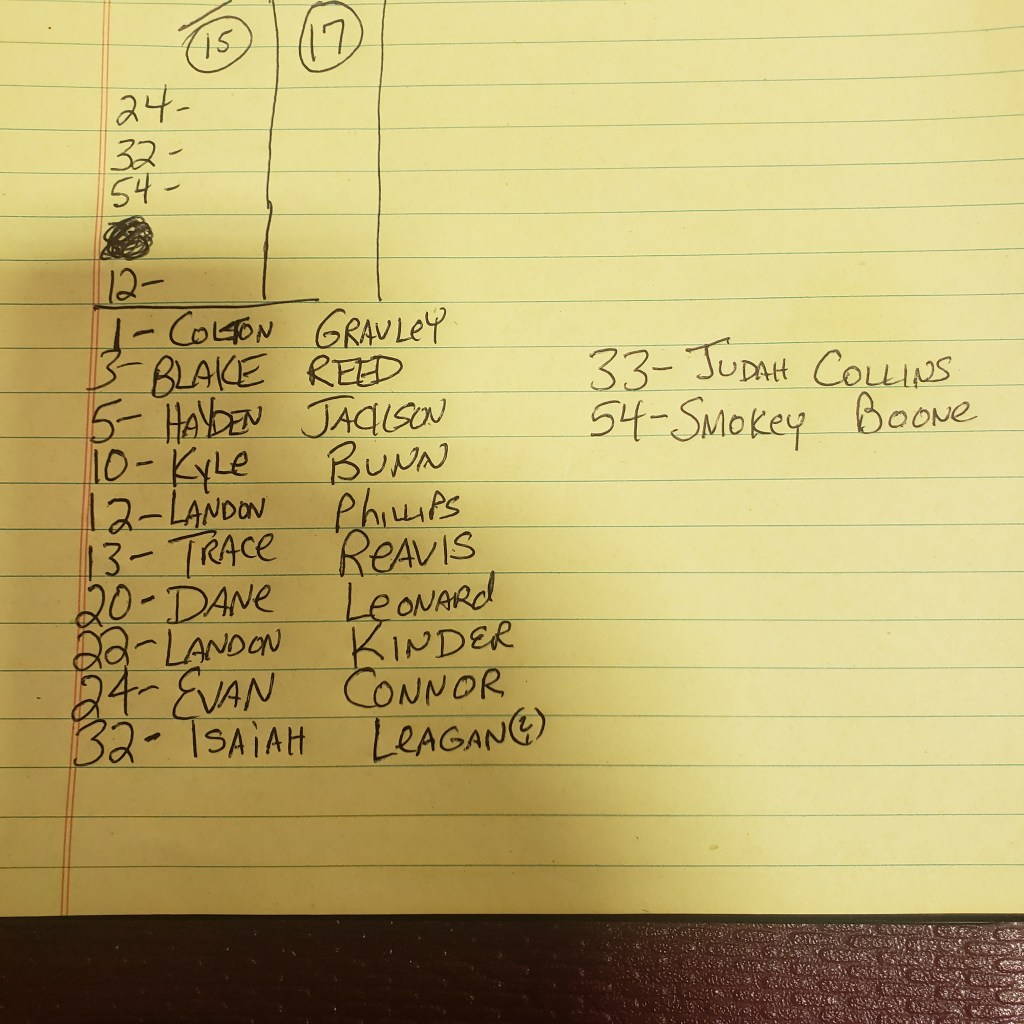 15 17
24-
32-
54-
12-
1- COLTON GRAVLEY
3- BLAKE REED
5- HAYDEN JACKSON
10- KYLE BUNN
12- LANDON PHILLIPS
13- TRACE REAVIS
20- DANE LEONARD
22- LANDON KINDER
24- EVAN CONNOR
32- ISAIAH LEAGAN
33- JUDAH COLLINS
54- SMOKEY BOONE